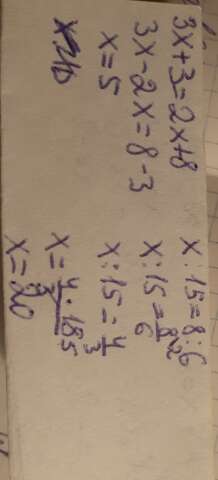 3x+3=2x+8
3x-2x=8-3
x=5
x:15=8:6
x:15=8/6
x:15=4/3
x=4·15/3
x=20